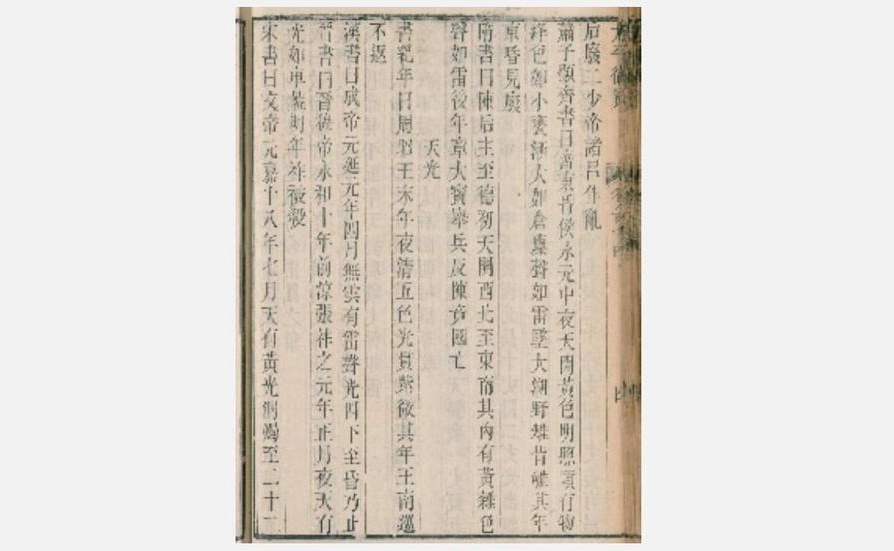 后廢二少帝諸呂作亂
蕭子顯齊書曰齊東昏侯永元中夜天開黃色明照須有物
絳色如小甕漸大如倉廩聲如雷墜大湖野雉皆雊其年
東昏見廢
隋書曰陳后主至德初天開西北至東南其內有黃雜色
聲如雷後年章大寶舉兵反陳竟國亡
天光
書紀年曰周昭王末年夜清五色光貫紫微其年王南巡
不返
漢書曰成帝元延元年四月無雲有雷聲光四下至昏乃止
晉書曰晉穆帝永和十年前涼張祚之元年正月夜天有
光如車蓋明年祚被殺
宋書曰文帝元嘉十八年七月天有黃光洞燭至二十一